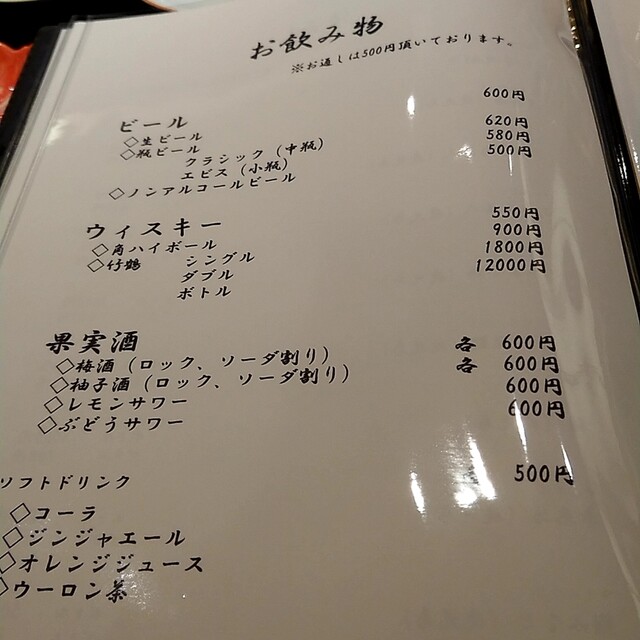 お飲み物
※お通しは500円頂いております。
ビール
◇生ビール 600円
◇瓶ビール
クラシック（中瓶） 620円
エビス（小瓶） 580円
◇ノンアルコールビール 500円
ウィスキー
◇角ハイボール 550円
◇竹鶴 シングル 900円
ダブル 1800円
ボトル 12000円
果実酒
◇梅酒（ロック、ソーダ割り） 各 600円
◇柚子酒（ロック、ソーダ割り） 各 600円
◇レモンサワー 600円
◇ぶどうサワー 600円
ソフトドリンク 各 500円
◇コーラ
◇ジンジャエール
◇オレンジジュース
◇ウーロン茶